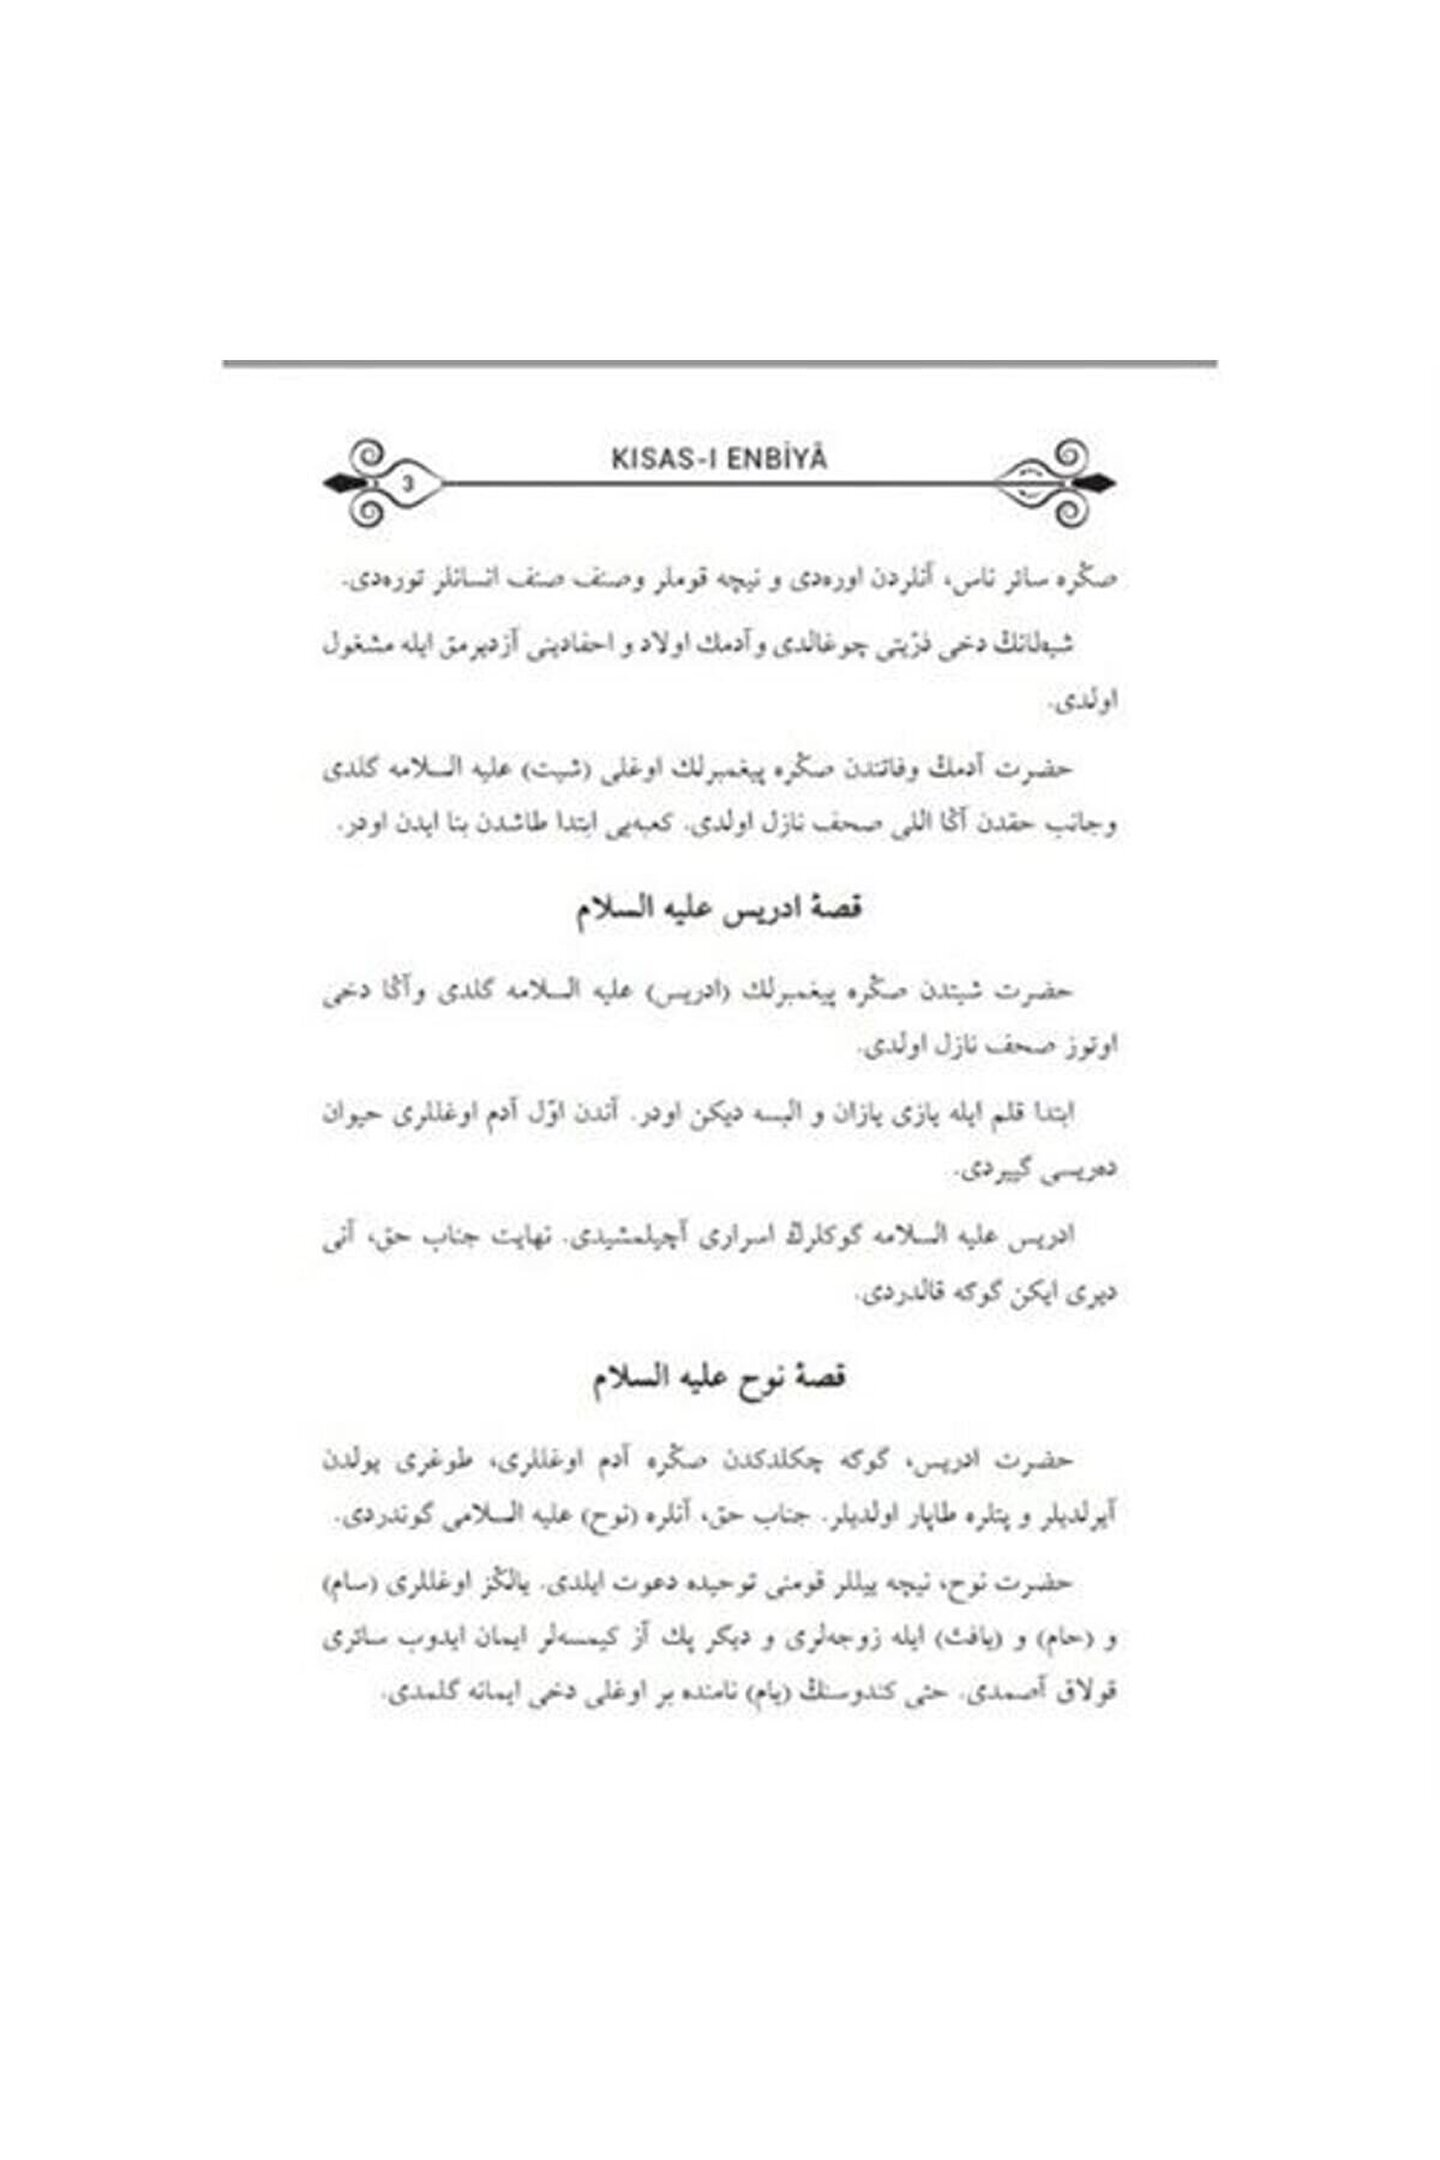 KISAS-I ENBİYÂ
3
صڭره سائر ناس، آنلردن اوره‌دی و نیچه قوملر وصنف صنف انسانلر توره‌دی.
شیطانڭ دخی ذرّیتی چوغالدی وآدمك اولاد و احفادینی آزدیرمق ایله مشغول
اولدی.
حضرت آدمڭ وفاتندن صڭره پیغمبرلك اوغلی (شیت) علیه السلامه گلدی
وجانب حقدن آڭا اللی صحف نازل اولدی. کعبه‌یی ابتدا طاشدن بنا ایدن اودر.
قصۀ ادریس علیه السلام
حضرت شیتدن صڭره پیغمبرلك (ادریس) علیه السلامه گلدی وآڭا دخی
اوتوز صحف نازل اولدی.
ابتدا قلم ایله یازی یازان و البسه دیکن اودر. آندن اوّل آدم اوغللری حیوان
ده‌ریسی گییردی.
ادریس علیه السلامه گوکلرڭ اسراری آچیلمشیدی. نهایت جناب حق، آنی
دیری ایکن گوکه قالدردی.
قصۀ نوح علیه السلام
حضرت ادریس، گوکه چکلدکدن صڭره آدم اوغللری، طوغری یولدن
آیرلدیلر و پتلره طاپار اولدیلر. جناب حق، آنلره (نوح) علیه السلامی گوندردی.
حضرت نوح، نیچه ییللر قومنی توحیده دعوت ایلدی. یالڭز اوغللری (سام)
و (حام) و (یافث) ایله زوجه‌لری و دیگر پك آز کیمسه‌لر ایمان ایدوب سائری
قولاق آصمدی. حتی کندوسنڭ (یام) نامنده بر اوغلی دخی ایمانه گلمدی.